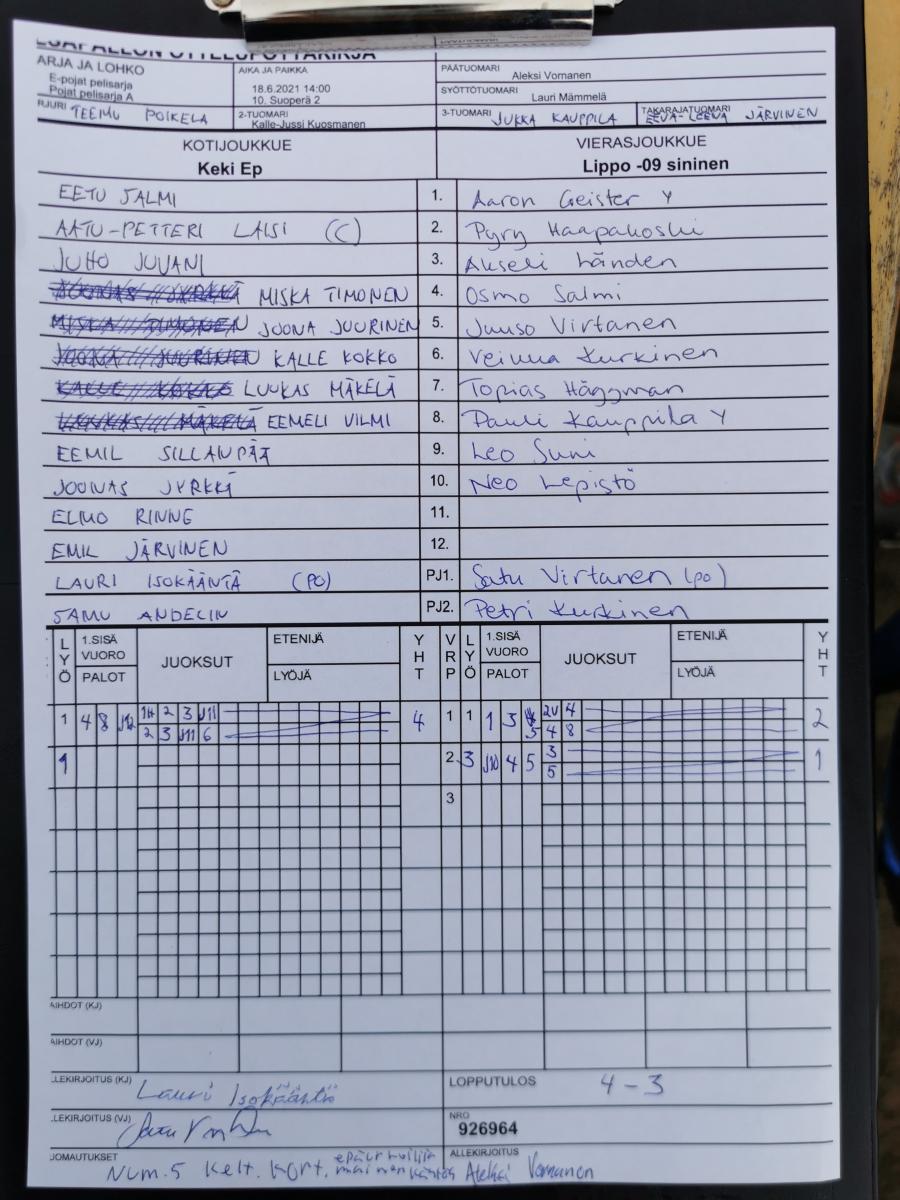 ARJA JA LOHKO
E-pojat pelisarja
Pojat pelisarja A
AIKA JA PAIKKA
18.6.2021 14:00
10. Suoperä 2
PÄÄTUOMARI
Aleksi Vornanen
SYÖTTÖTUOMARI
Lauri Mämmelä
TEEMU POIKELA
2-TUOMARI
Kalle-Jussi Kuosmanen
3-TUOMARI JUKKA KAUPPILA
TAKARAJATUOMARI
EEVA-LEENA JÄRVINEN
KOTIJOUKKUE
Keki Ep
VIERASJOUKKUE
Lippo -09 sininen
EETU JALMI 1. Aaron Geister Y
AATU-PETTERI LAISI (C) 2. Pyry Haapakoski
JUHO JUVANI 3. Akseli Länden
MISKA TIMONEN 4. Osmo Salmi
MISKA TIMONEN JOONA JUURINEN 5. Juuso Virtanen
JOONA JUURINEN KALLE KOKKO 6. Kurkinen
KALLE KOKKO LUUKAS MÄKELÄ 7. Topias Häggman
LUUKAS MÄKELÄ EEMELI VILMI 8. Pauli Kauppila Y
EEMIL SILLANPÄÄ 9. Leo Suni
JOONAS JYRKKÄ 10. Neo Lepistö
ELMO RINNE 11.
EMIL JÄRVINEN 12.
LAURI ISOKÄÄNTÄ (PO) PJ1. Satu Virtanen (po)
SAMU ANDELIN PJ2. Petri Kurkinen
LYÖ 1.SISÄ VUORO PALOT JUOKSUT ETENIJÄ LYÖJÄ YHT VRP LYÖ 1.SISÄ VUORO PALOT JUOKSUT ETENIJÄ LYÖJÄ YHT
1 4 8 J12 1H 2 3 J11 4 1 1 1 3 5 2V 4 2
2 3 J11 6 4 8
1 2 3 J10 4 5 3 1
5
3
AIHDOT (KJ)
AIHDOT (VJ)
LEKIRJOITUS (KJ) Lauri Isokääntä
LOPPUTULOS 4-3
LEKIRJOITUS (VJ)
NRO
926964
JOMAUTUKSET
Num.5 kelt. kort.
ALLEKIRJOITUS
Aleksi Vornanen